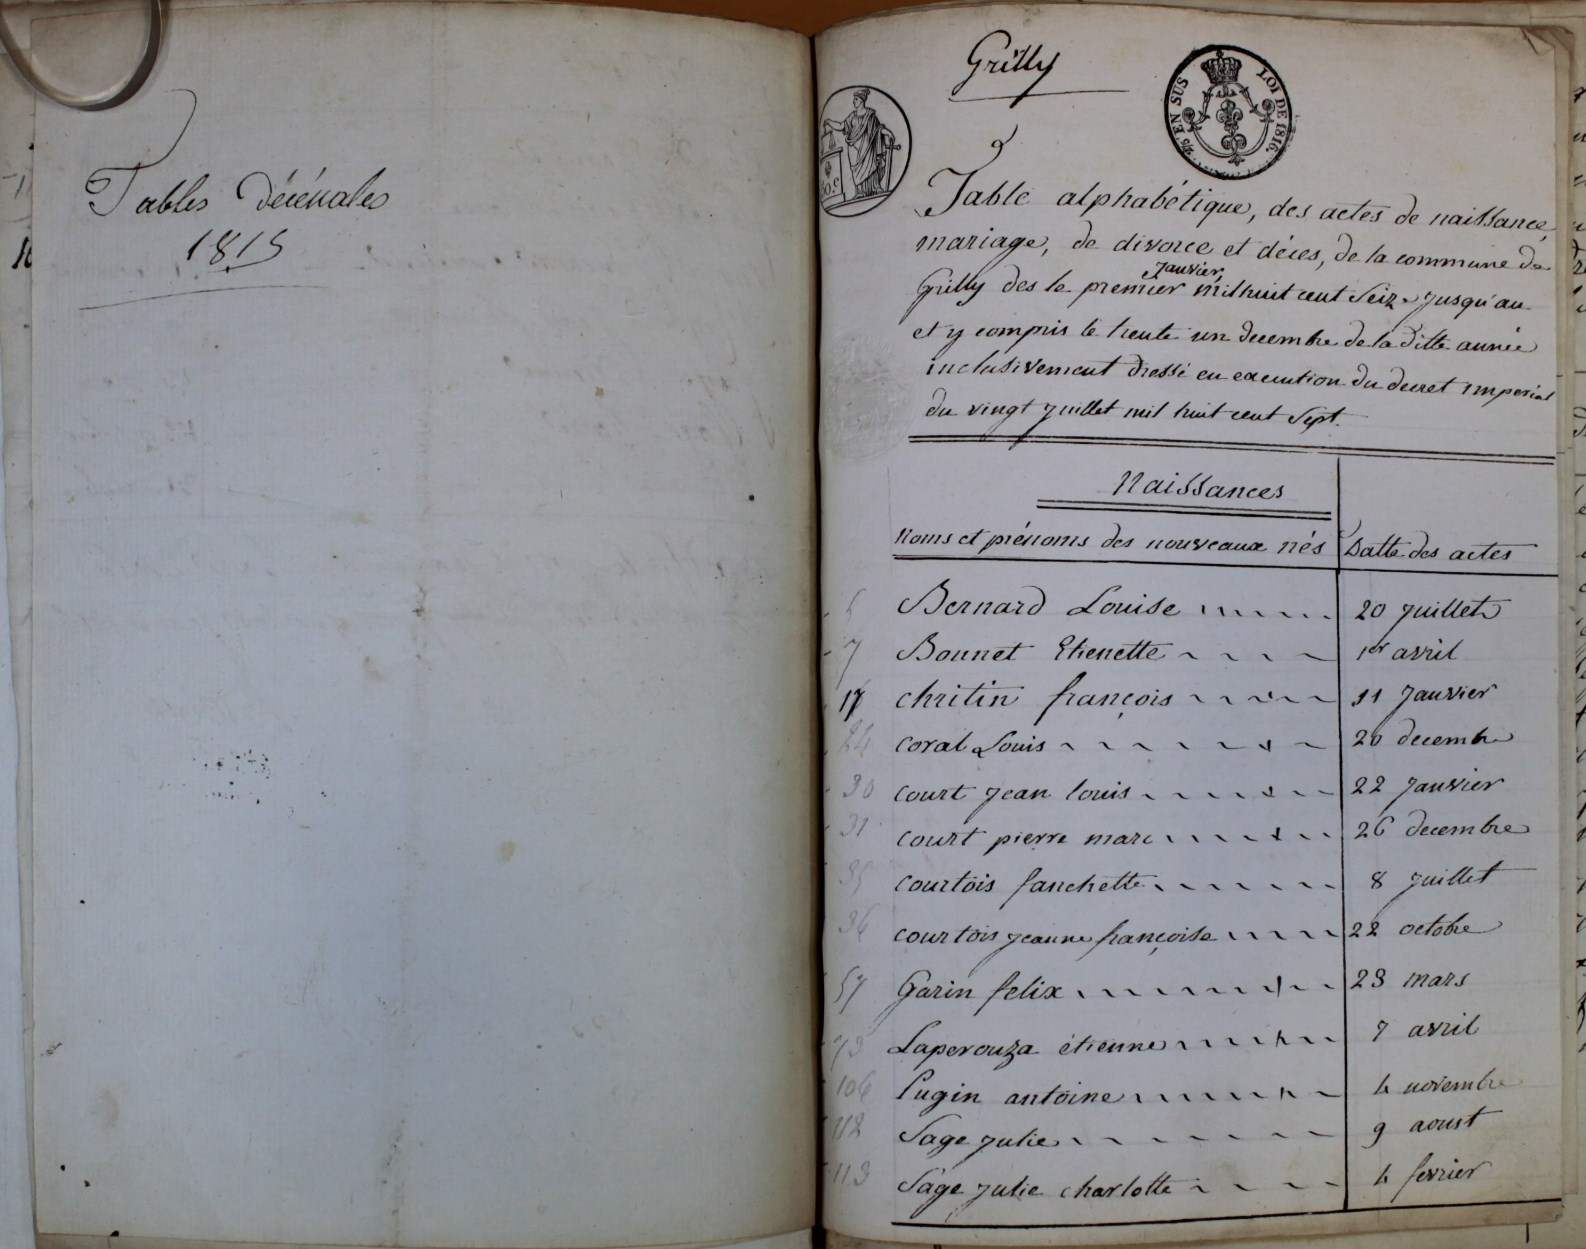 Tables Décénales
1815
Grilly
75 EN SUS LOI DE 1816.
50.c
Table alphabétique, des actes de naissance,
mariage, de divorce et décès, de la commune de
Janvier,
Grilly des le premier milhuit cent Seize jusqu'au
et y compris le trente un decembre de la ditte année
inclusivement dressé en execution du decret impérial
du vingt juillet mil huit cent Sept.
Naissances
Noms et prénoms des nouveaux nés Datte des actes
6 Bernard Louise 20 juillet
7 Bonnet Etienette 1er avril
17 chritin françois 11 Janvier
24 coral Louis 20 decembre
30 court jean louis 22 Janvier
31 court pierre marc 26 decembre
35 courtois fanchette 8 juillet
36 courtois jeanne françoise 22 octobre
57 Garin felix 23 mars
73 Laperouza étienne 7 avril
106 Pugin antoine 4 novembre
112 Sage julie 9 aoust
113 Sage julie charlotte 4 fevrier